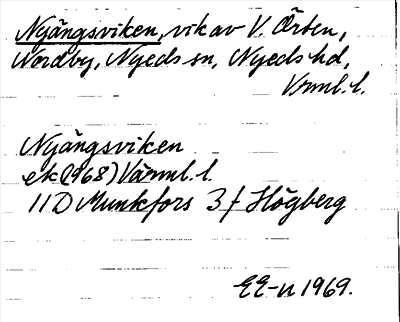 Nyängsviken, vik av V. Örten,
Nordby, Nyeds sn, Nyeds hd,
Vrml. l.
Nyängsviken
ek (1968) Värml. l.
11D Munkfors 3 f Högberg
EE-n 1969.